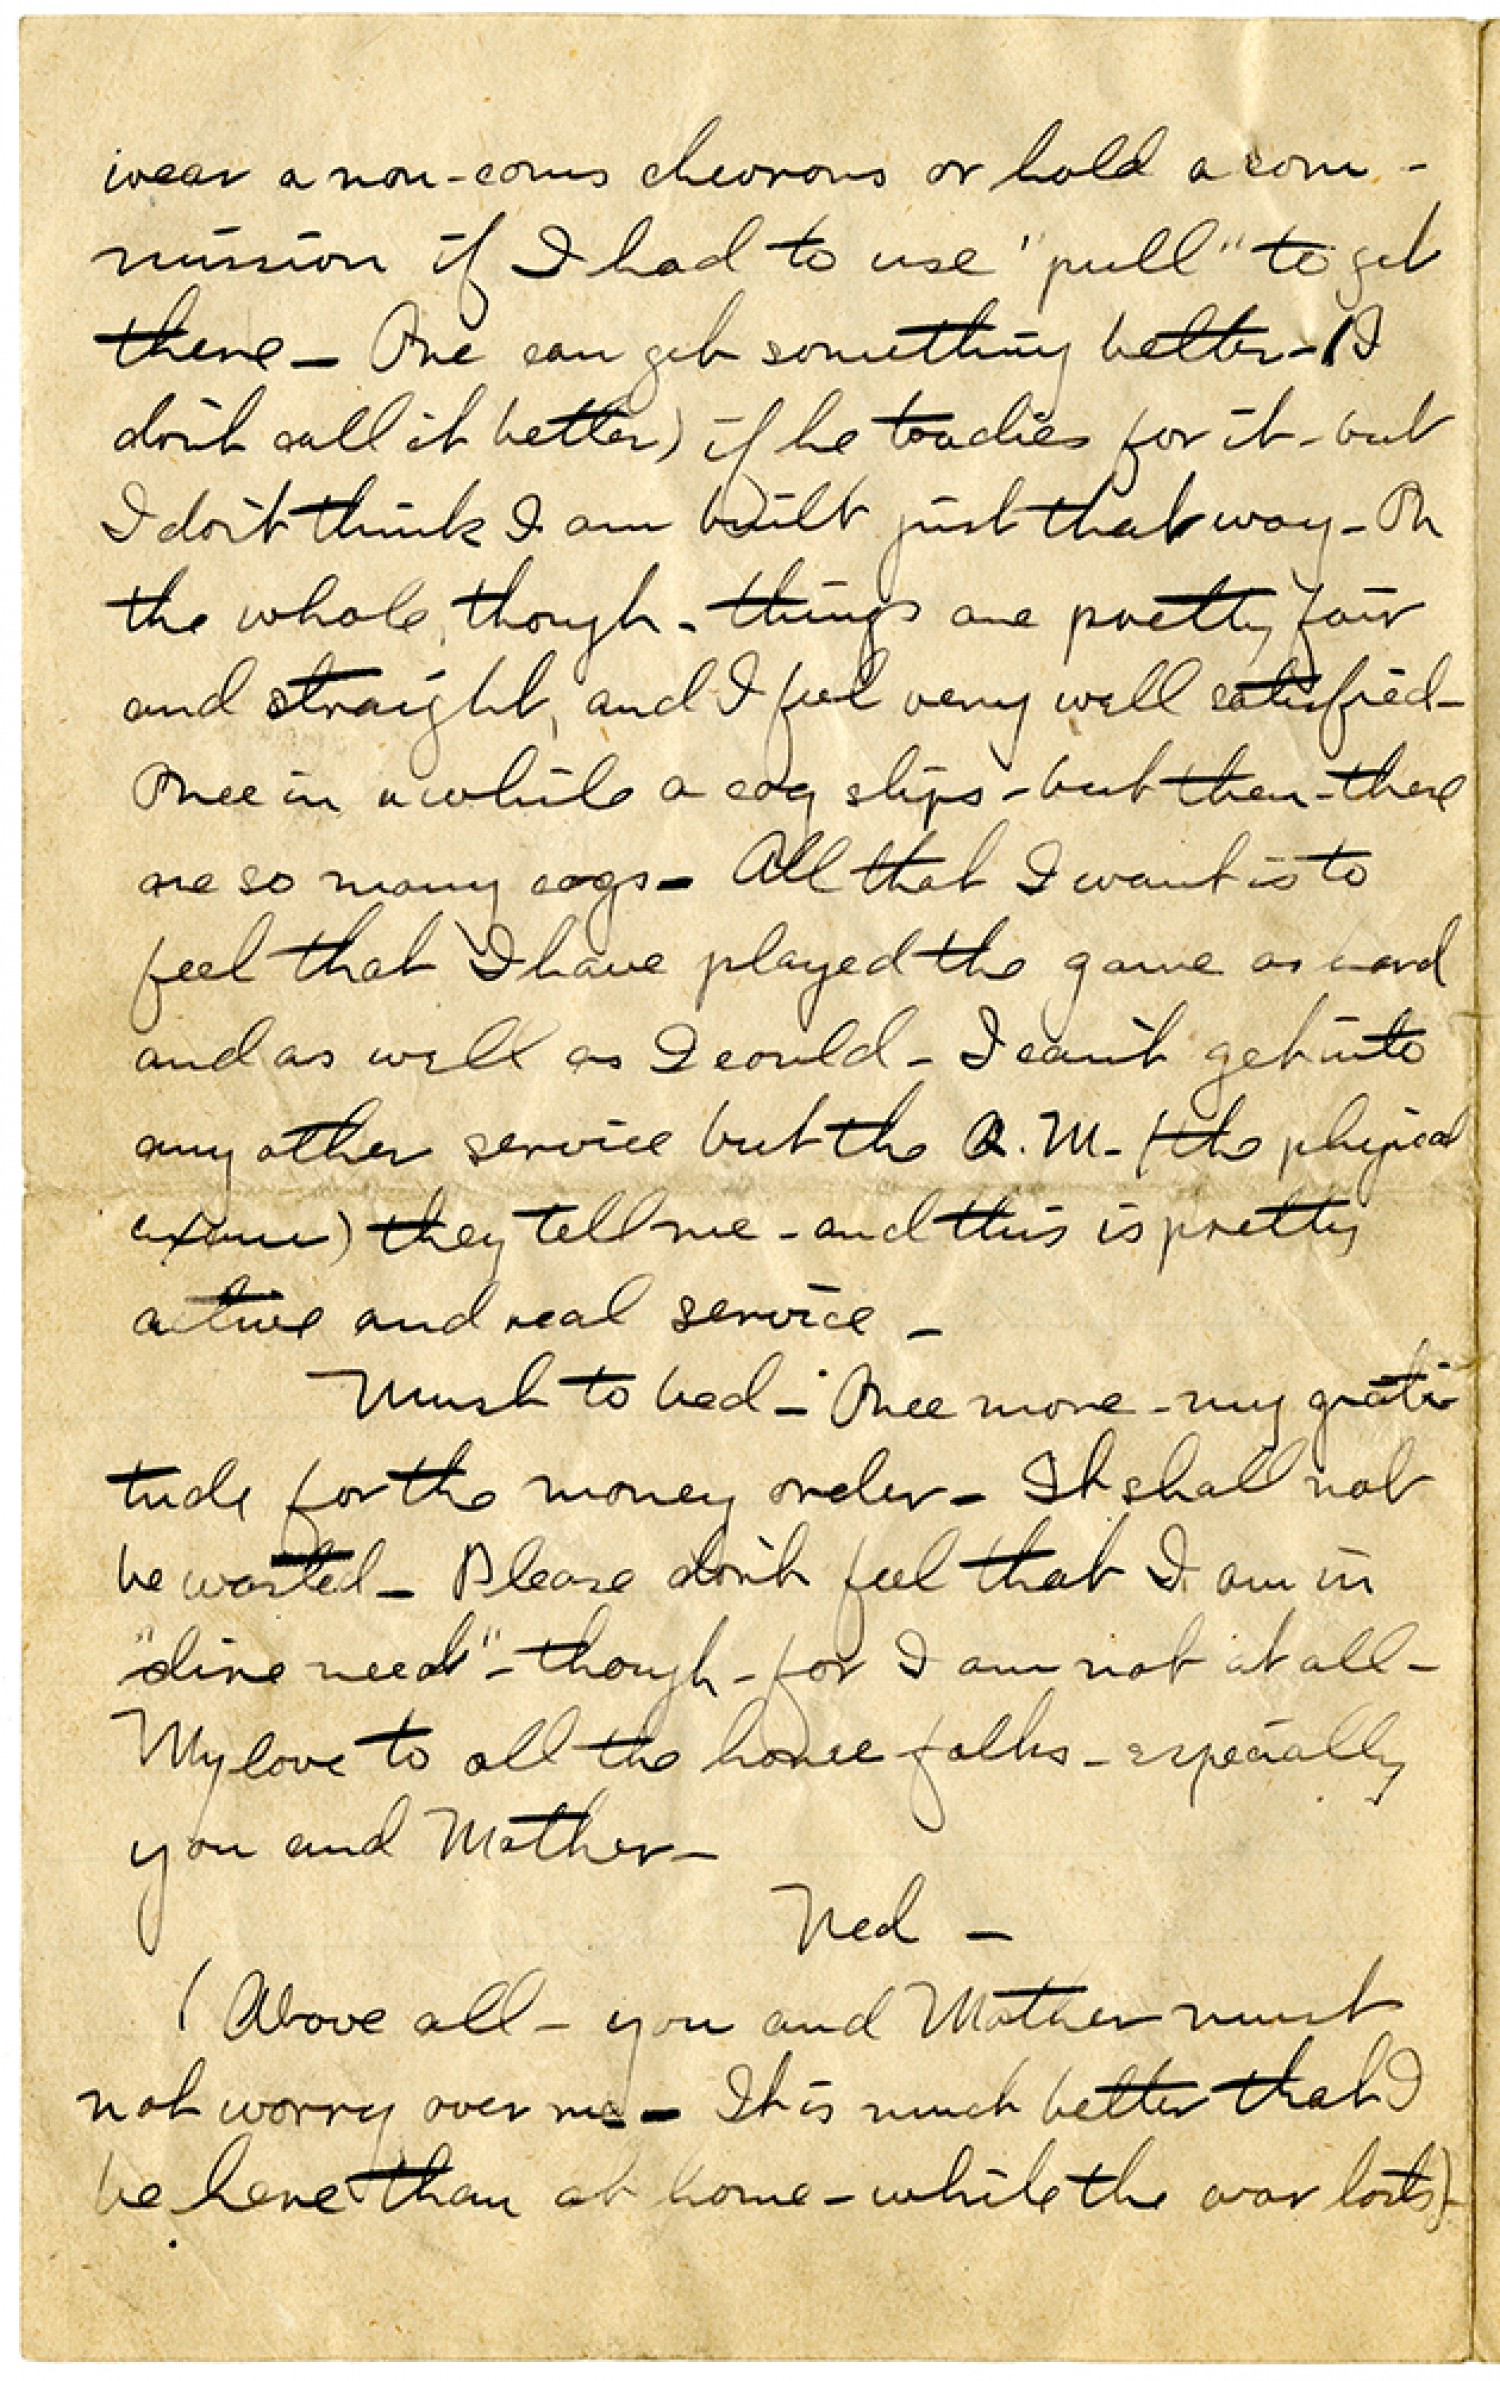 wear a non-coms chevrons or hold a com-
mission if I had to use "pull" to get
there - One can get something better - (I
don't call it better) if he toadies for it - but
I don't think I am built just that way - On
the whole, though - things are pretty fair
and straight, and I feel very well satisfied -
Once in a while a cog slips - but then - there
are so many cogs - All that I want is to
feel that I have played the game as hard
and as well as I could - I can't get into
any other service but the Q.M. - (the physical
exam) they tell me - and this is pretty
active and real service -
Must to bed - Once more - my grati-
tude for the money order - It shall not
be wasted - Please don't feel that I am in
"dire need" - though - for I am not at all -
My love to all the home folks - especially
you and Mother -
Ned -
(Above all - you and Mother must
not worry over me - It is much better that I
be here than at home - while the war lasts) -